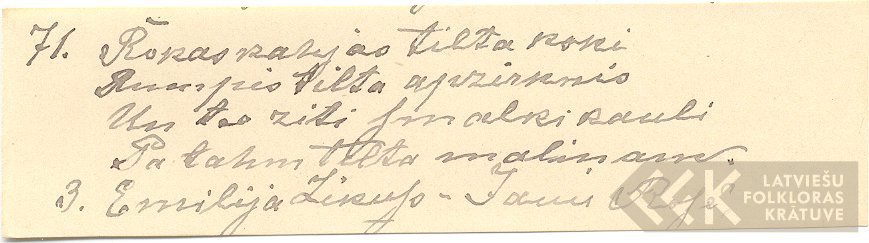 71. Rokas kahjas tilta koki
Rumpis tilta apzirknis
Un tee ziti smalki kauli
Pa tahm tilta malinam.
3. Emilija - Janis
LATVIEŠU
FOLKLORAS
KRĀTUVE